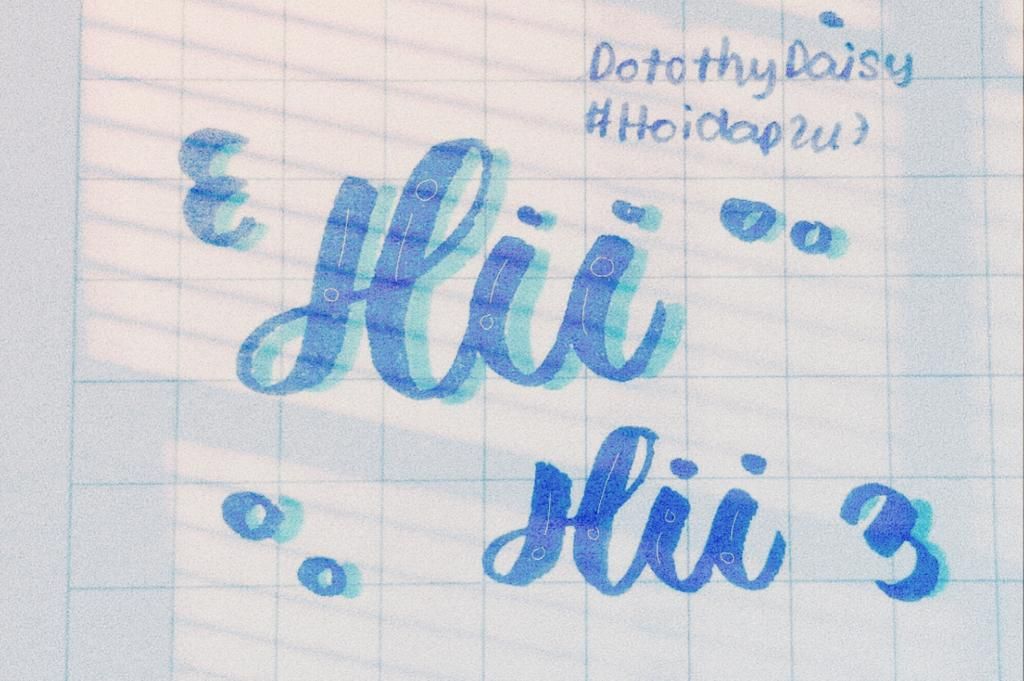 DotothyDaisy
#Hoidap247
Hii
Hii